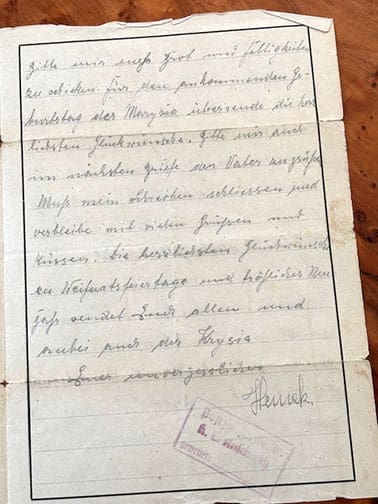 Bitte mir noch Brot und Süßigkeiten
zu schicken. Für den ankommenden Ge-
burtstag der Marysia übersende die herz
lichsten Glückwünsche. Bitte mir auch
im nächsten Briefe der Vater angrüße
Muß mein Schreiben schliessen und
verbleibe mit vielen Grüßen und
Küssen. Die herzlichsten Glückwünsche
zu Weihnatsfeiertage und fröhliches Neu
jahr sendet Euch allen und
anbei auch der Krysia
Euer unvergesslicher
Heniek.